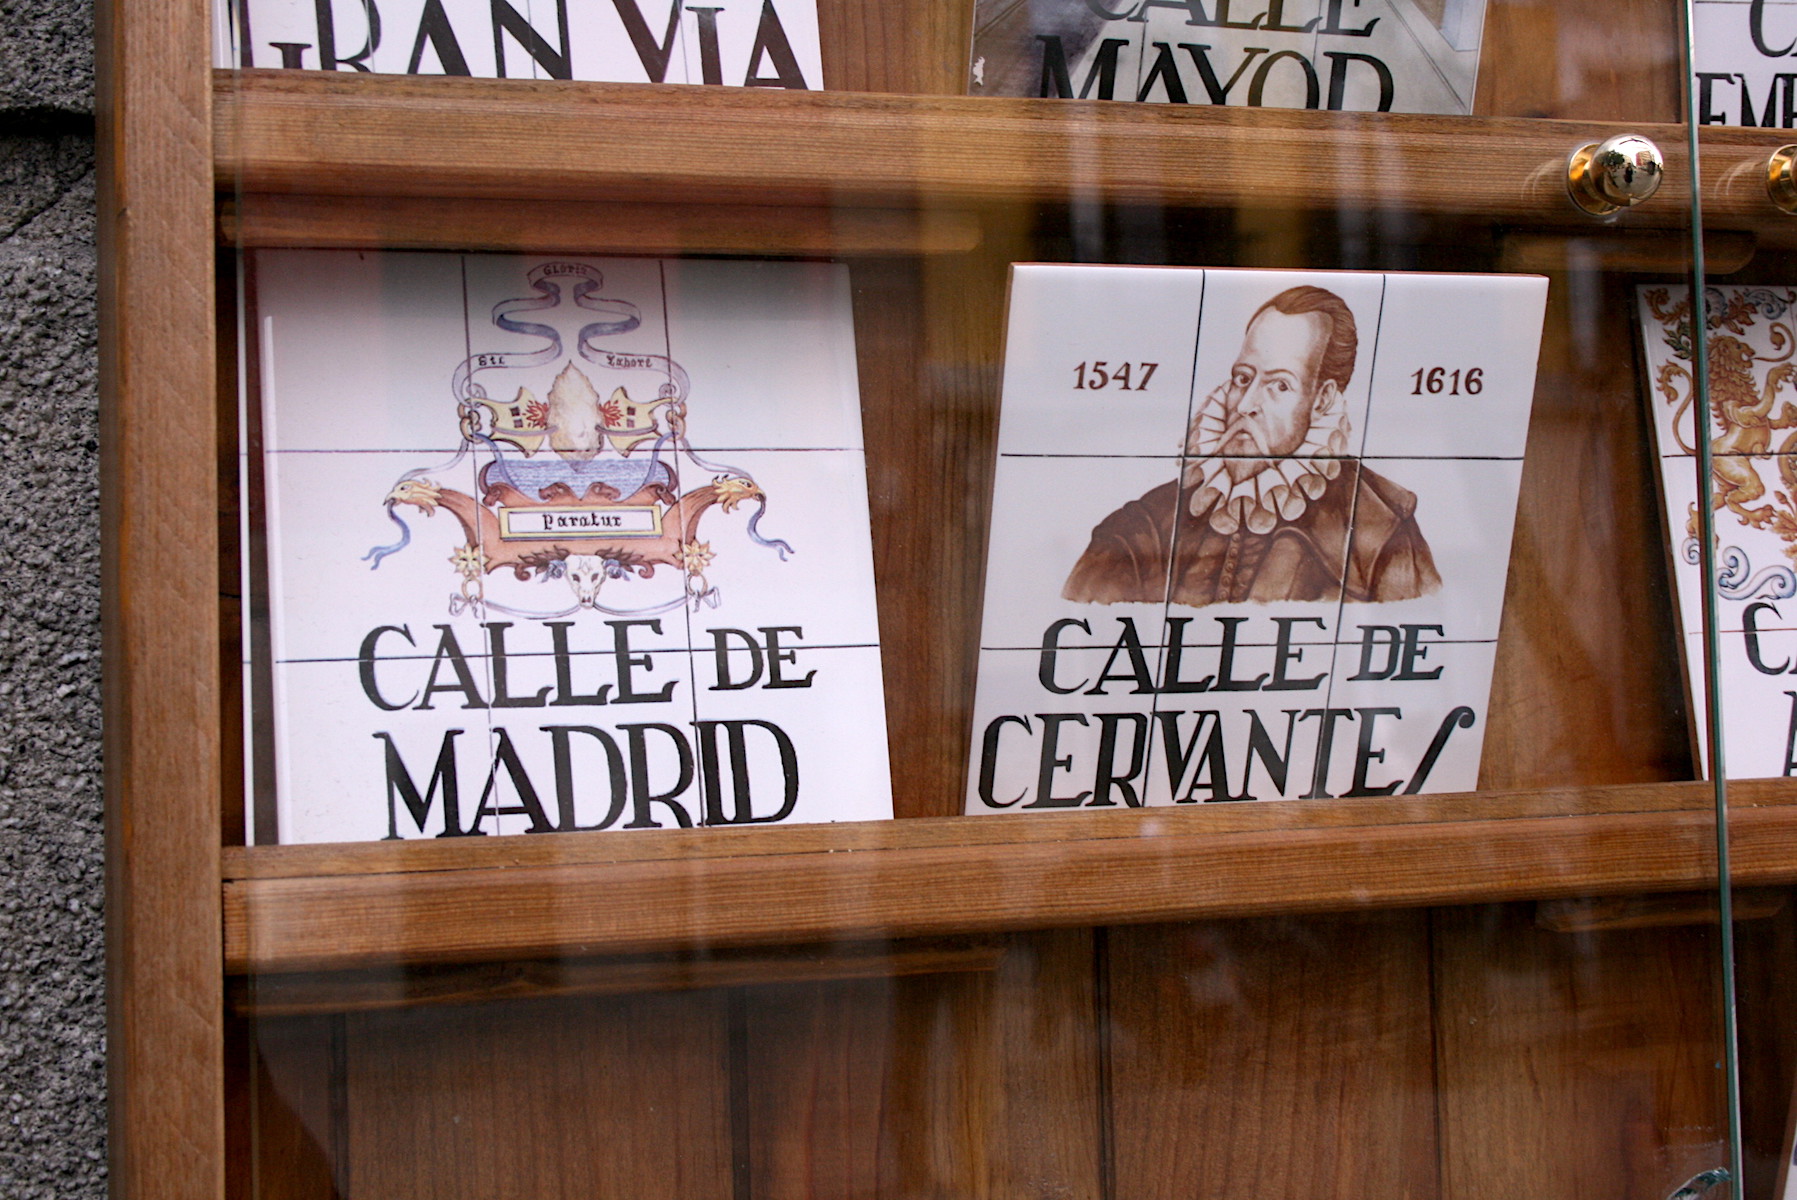 GRAN VIA
CALLE
MAYOR
Gloria
Sic
Labore
Paratur
CALLE DE
MADRID
1547
1616
CALLE DE
CERVANTES